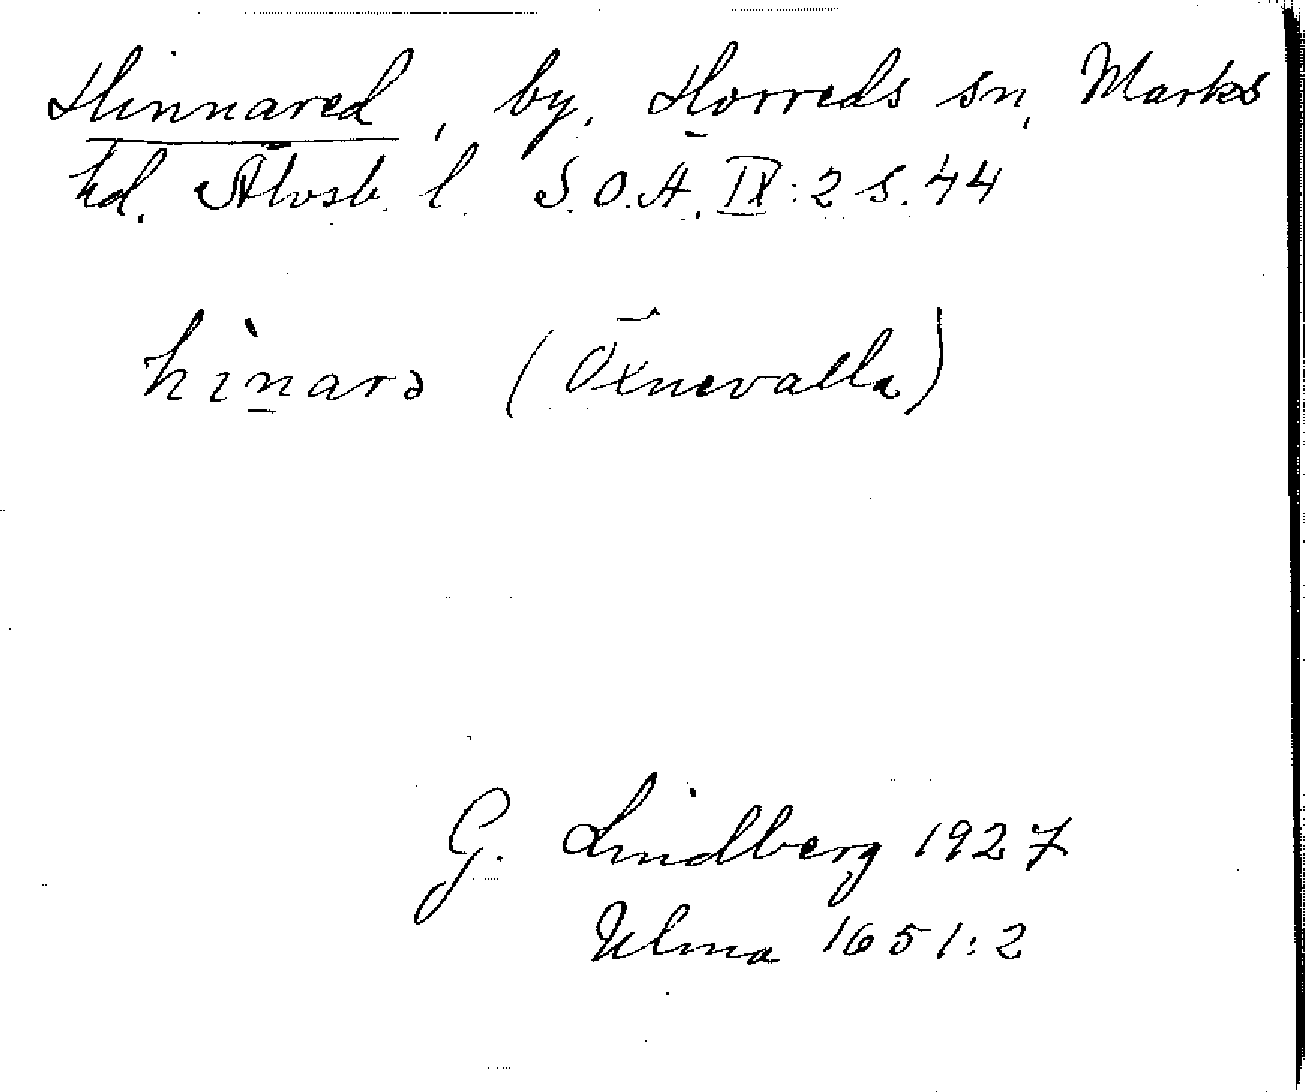 Hinnared, by, Horreds sn, Marks
hd. Älvsb. l. S.O.Ä. IX:2 S.44
hìn̲arə (Öxnevalla)
G. Lindberg 1927
Ulma 1651:2